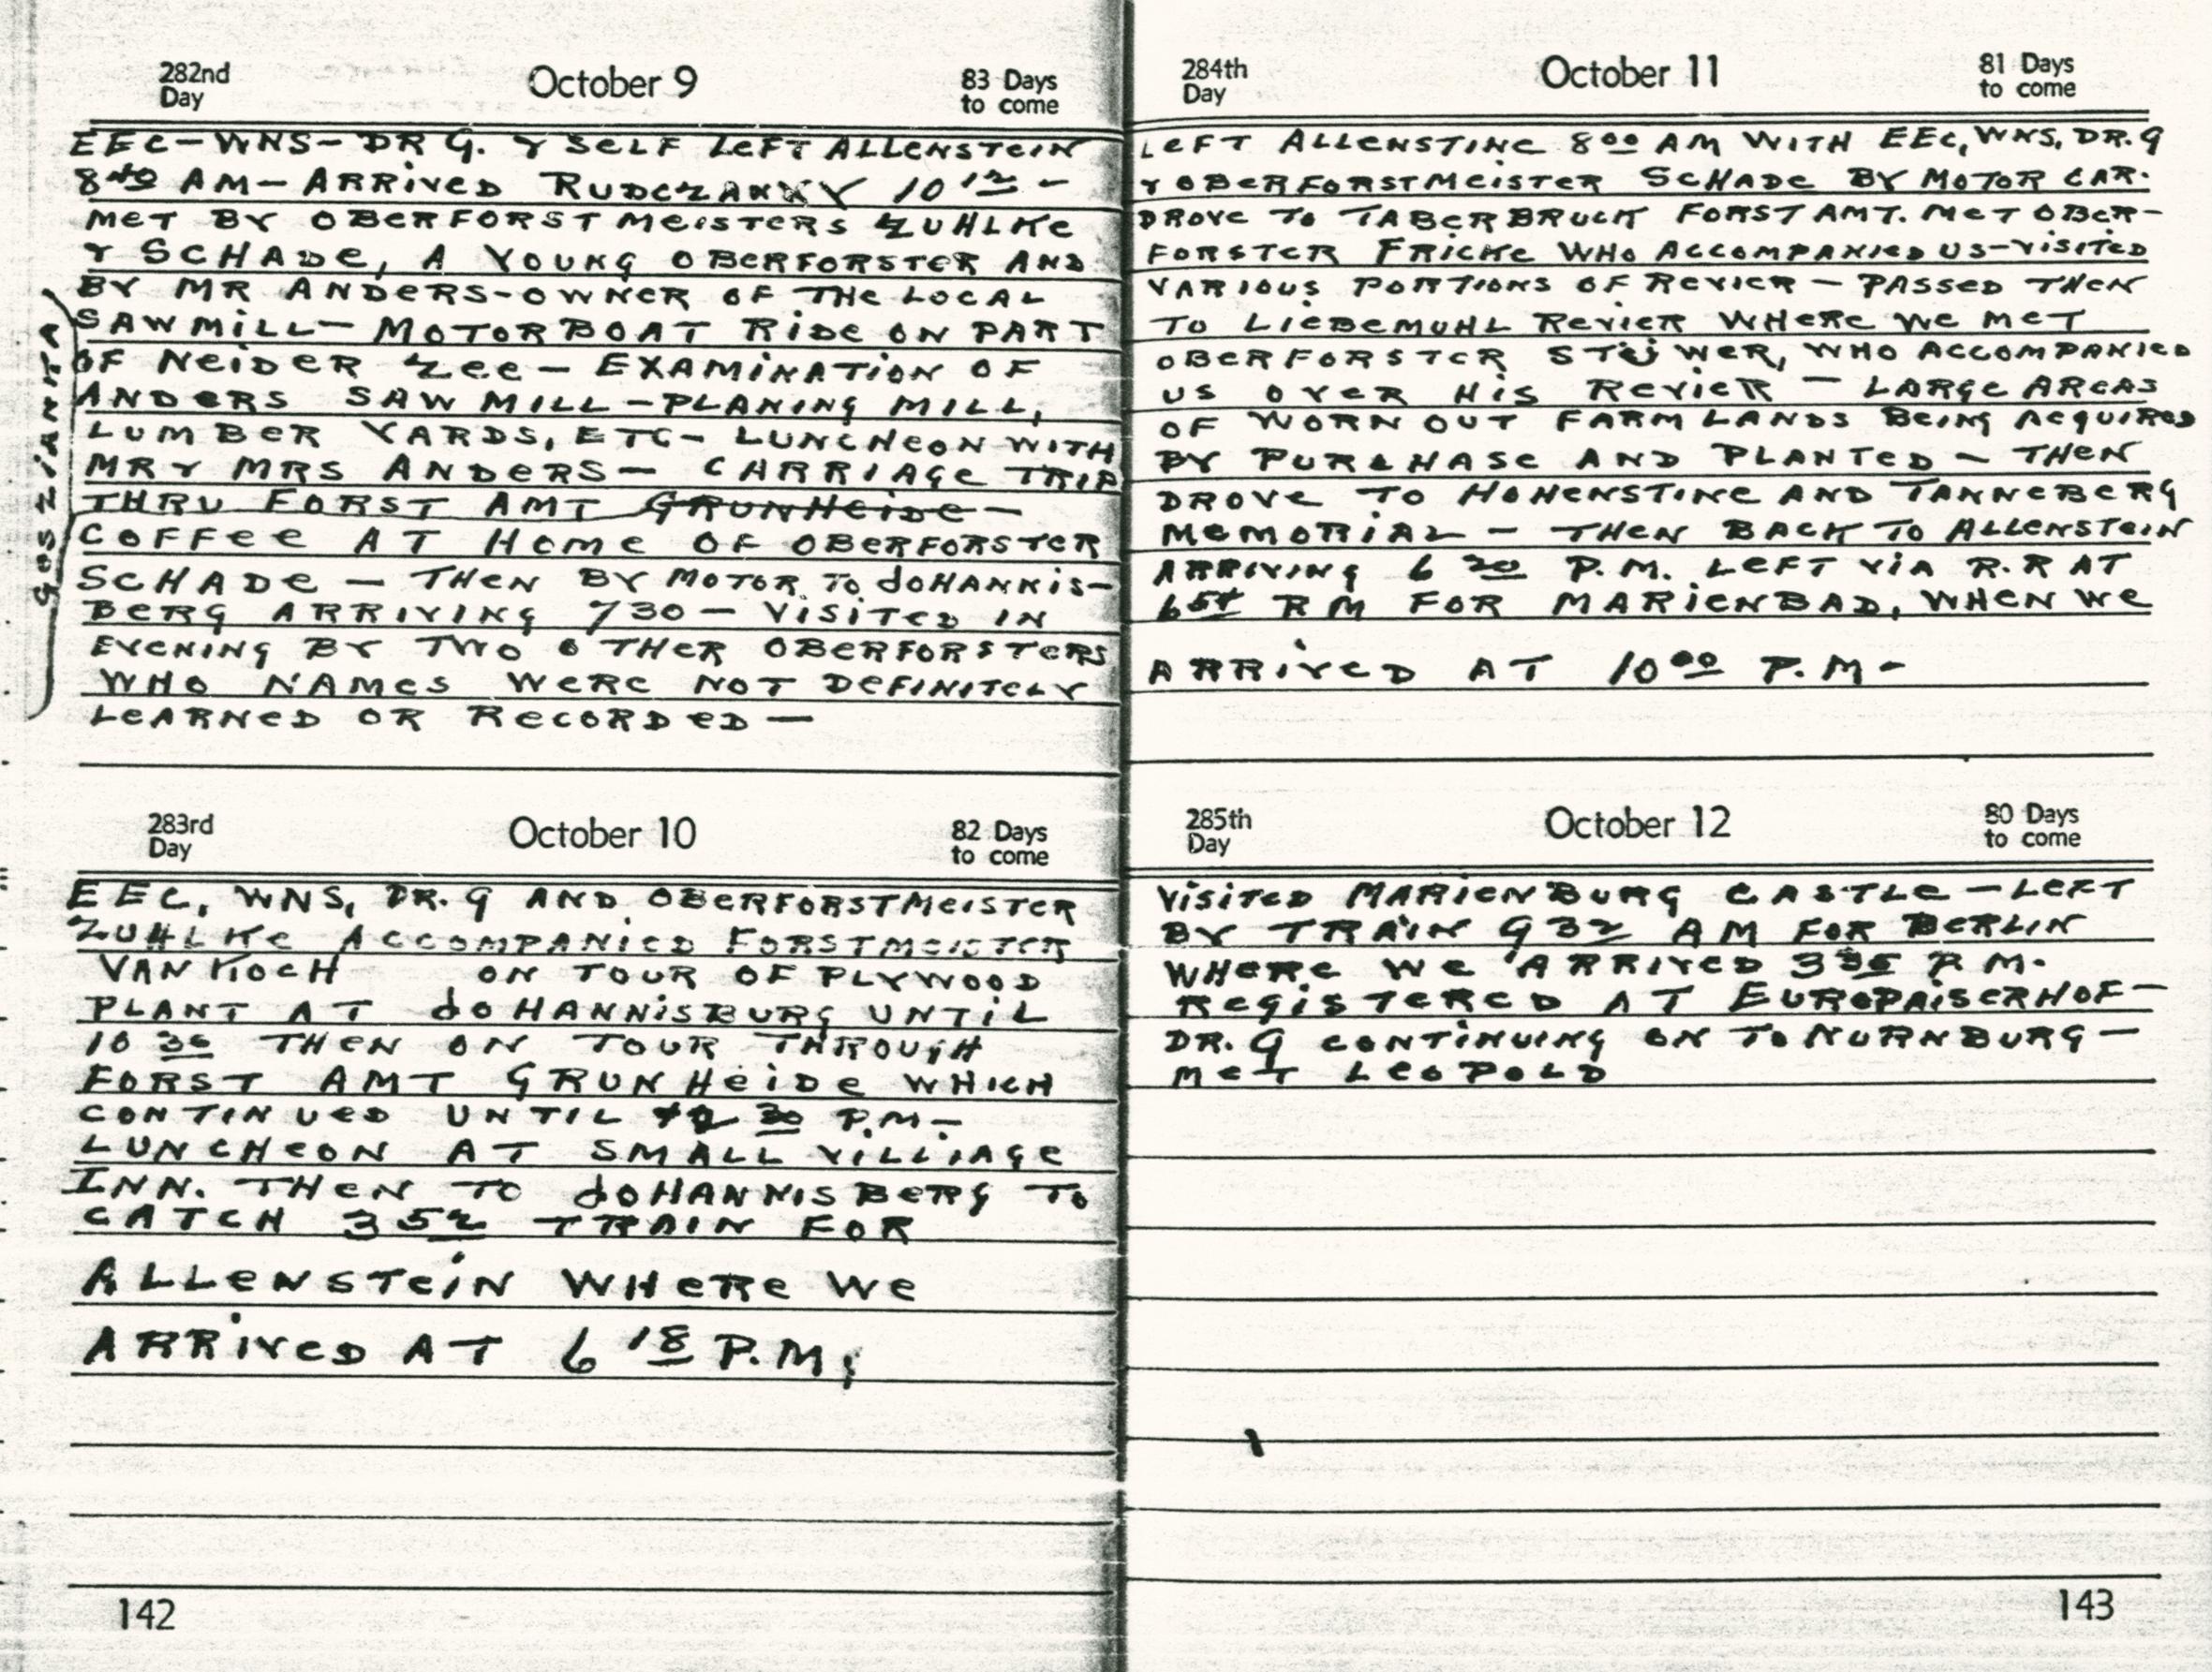 282nd Day October 9 83 Days to come
EEC-WNS-DR G. & SELF LEFT ALLENSTEIN
8 40 AM- ARRIVED RUDCZANKY 10 12 -
MET BY OBERFORSTMEISTERS ZUHLKE
& SCHADE, A YOUNG OBERFORSTER AND
BY MR ANDERS-OWNER OF THE LOCAL
SAWMILL- MOTORBOAT RIDE ON PART
OF NEIDER ZEE - EXAMINATION OF
ANDERS SAWMILL-PLANING MILL,
LUMBER YARDS, ETC- LUNCHEON WITH
MR & MRS ANDERS- CARRIAGE TRIP
THRU FORST AMT GRUNHEIDE-
GOSZIANKA
COFFEE AT HOME OF OBERFORSTER
SCHADE - THEN BY MOTOR TO JOHANNIS-
BERG ARRIVING 730- VISITED IN
EVENING BY TWO OTHER OBERFORSTERS
WHO NAMES WERE NOT DEFINITELY
LEARNED OR RECORDED-
283rd Day October 10 82 Days to come
EEC, WNS, DR. G AND OBERFORSTMEISTER
ZUHLKE ACCOMPANIED FORSTMEISTER
VAN KOCH ON TOUR OF PLYWOOD
PLANT AT JOHANNISBURG UNTIL
10 30 THEN ON TOUR THROUGH
FORST AMT GRUNHEIDE WHICH
CONTINUED UNTIL 2 30 P.M-
LUNCHEON AT SMALL VILLIAGE
INN. THEN TO JOHANNISBERG TO
CATCH 3 52 TRAIN FOR
ALLENSTEIN WHERE WE
ARRIVED AT 6 18 P.M.
142
284th Day October 11 81 Days to come
LEFT ALLENSTINE 8 00 AM WITH EEC, WNS, DR. G
& OBERFORSTMEISTER SCHADE BY MOTOR CAR.
DROVE TO TABERBRUCK FORST AMT. MET OBER-
FORSTER FRICKE WHO ACCOMPANIED US-VISITED
VARIOUS PORTIONS OF REVIER - PASSED THEN
TO LIEBEMUHL REVIER WHERE WE MET
OBERFORSTER STÜWER, WHO ACCOMPANIED
US OVER HIS REVIER - LARGE AREAS
OF WORN OUT FARM LANDS BEING ACQUIRED
BY PURCHASE AND PLANTED - THEN
DROVE TO HOHENSTINE AND TANNEBERG
MEMORIAL - THEN BACK TO ALLENSTEIN
ARRIVING 6 20 P.M. LEFT VIA R.R AT
6 54 PM FOR MARIENBAD, WHEN WE
ARRIVED AT 10 00 P.M-
285th Day October 12 80 Days to come
VISITED MARIENBURG CASTLE - LEFT
BY TRAIN 9 32 AM FOR BERLIN
WHERE WE ARRIVED 3 35 P.M.
REGISTERED AT EUROPAISERHOF-
DR. G CONTINUING ON TO NURNBURG-
MET LEOPOLD
143